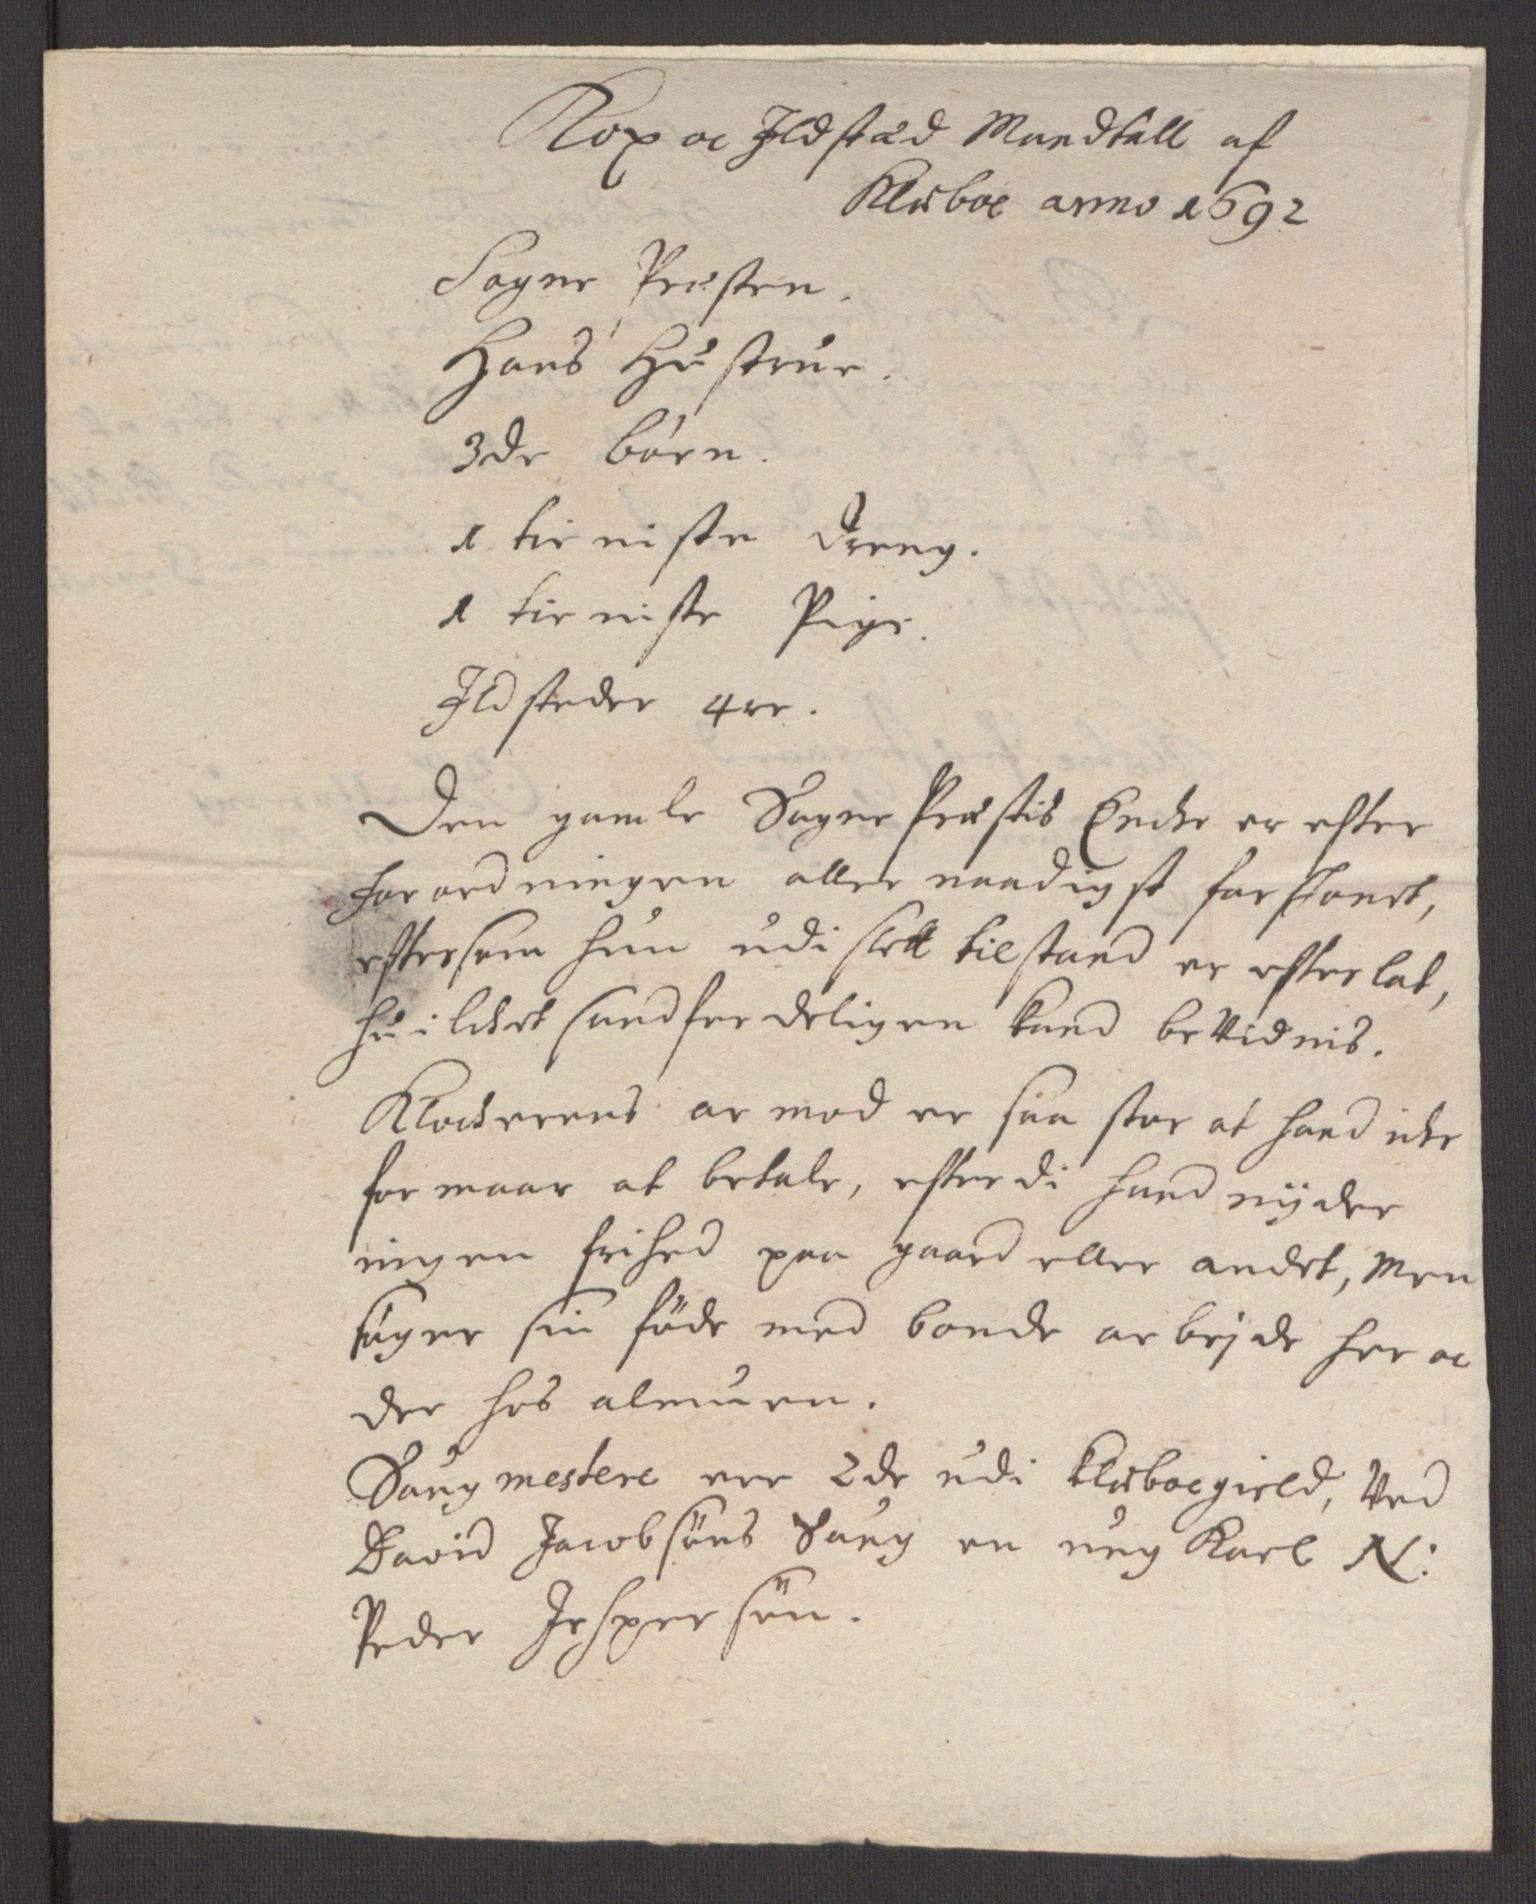 Kop oc Ildstæd Mandtall af
Klæboe anno 1692
Sogne Præsten.
Hans Hustrue.
3de börn.
1 tieniste Dreng.
1 tieniste Pige.
Ildsteder 4re.
Den gamle Sogne Præstis Encke er efter
forordningen aller naadigst forskonet,
eftersom hun udi slett tilstand er efterlat,
huilcket sandferdeligen kand beVidnis.
Klockerens armod er saa stor at hand icke
formaar at betale, efterdi hand nÿder
ingen frihed paa gaard eller andet, Men
söger sin föde med bonde arbejde her oc
der hos almuen.
Saugmestere ere 2de udi Klæboegield, Ved
David Jacobsöns Saug en ung Karl N:
Peder Jespersön.